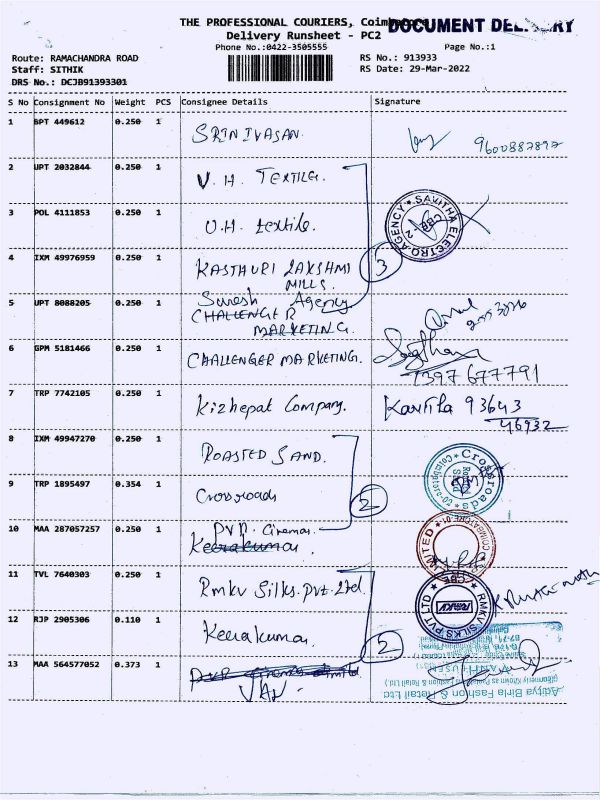 THE PROFESSIONAL COURIERS, Coimbatore
DOCUMENT
Delivery Runsheet - PC2
Phone No.:0422-3505555
Page No.:1
Route: RAMACHANDRA ROAD
RS No.: 913933
Staff: SITHIK
RS Date: 29-Mar-2022
DRS No.: DCJB91393301
S No Consignment No Weight PCS Consignee Details Signature
1 BPT 449612 0.250 1 SRINIVASAN 9600887897
2 UPT 2032844 0.250 1 V. H. TEXTILE.
3 POL 4111853 0.250 1 U.H. textile.
SAVITHA ELECTRO AGENCY
4 IXM 49976959 0.250 1 KASTHURI LAKSHMI
MILLS.
3
5 UPT 8088205 0.250 1 Suresh Agency.
CHALLENGER
MARKETING.
6 GPM 5181466 0.250 1 CHALLENGER MARKETING.
7397677791
7 TRP 7742105 0.250 1 Kizhepat Company. Kavitha 93643
46932
8 IXM 49947270 0.250 1 ROASTED SAND.
9 TRP 1895497 0.354 1 Crossroads
Crossroads
2
10 MAA 287057257 0.250 1 PVR. Cinemas
Keerakumar.
11 TVL 7640303 0.250 1 Rmkv Silks. Pvt. Ltd.
RMKV SILKS PVT LTD
RMKV
12 RJP 2905306 0.110 1 Keerakumar.
2
13 MAA 564577052 0.373 1 PVR Cinemas Limited
Aditya Birla Fashion & Retail Ltd